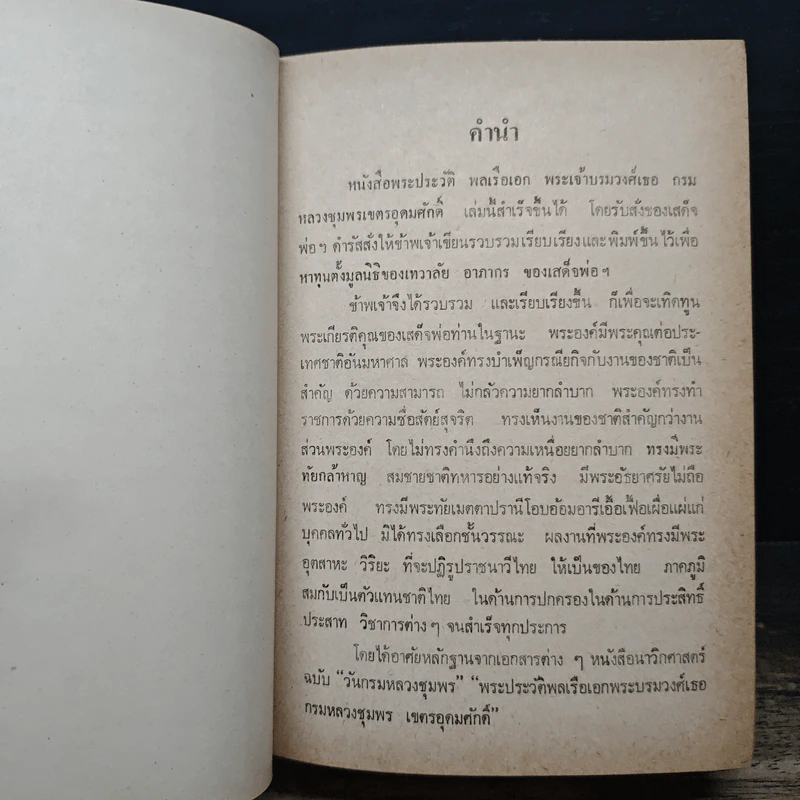 คำนำ
หนังสือพระประวัติ พลเรือเอก พระเจ้าบรมวงศ์เธอ กรม
หลวงชุมพรเขตรอุดมศักดิ์ เล่มนี้สำเร็จขึ้นได้ โดยรับสั่งของเสด็จ
พ่อฯ ดำรัสสั่งให้ข้าพเจ้าเขียนรวบรวมเรียบเรียงและพิมพ์ขึ้นไว้เพื่อ
หาทุนตั้งมูลนิธิของเทวาลัย อาภากร ของเสด็จพ่อฯ
ข้าพเจ้าจึงได้รวบรวม และเรียบเรียงขึ้น ก็เพื่อจะเทิดทูน
พระเกียรติคุณของเสด็จพ่อท่านในฐานะ พระองค์มีพระคุณต่อประ-
เทศชาติอันมหาศาล พระองค์ทรงบำเพ็ญกรณียกิจกับงานของชาติเป็น
สำคัญ ด้วยความสามารถ ไม่กลัวความยากลำบาก พระองค์ทรงทำ
ราชการด้วยความซื่อสัตย์สุจริต ทรงเห็นงานของชาติสำคัญกว่างาน
ส่วนพระองค์ โดยไม่ทรงคำนึงถึงความเหนื่อยยากลำบาก ทรงมีพระ
ทัยกล้าหาญ สมชายชาติทหารอย่างแท้จริง มีพระอัธยาศรัยไม่ถือ
พระองค์ ทรงมีพระทัยเมตตาปรานีโอบอ้อมอารีเอื้อเฟื้อเผื่อแผ่แก่
บุคคลทั่วไป มิได้ทรงเลือกชั้นวรรณะ ผลงานที่พระองค์ทรงมีพระ
อุตสาหะ วิริยะ ที่จะปฏิรูปราชนาวีไทย ให้เป็นของไทย ภาคภูมิ
สมกับเป็นตัวแทนชาติไทย ในด้านการปกครองในด้านการประสิทธิ์
ประสาท วิชาการต่างๆ จนสำเร็จทุกประการ
โดยได้อาศัยหลักฐานจากเอกสารต่าง ๆ หนังสือนาวิกศาสตร์
ฉบับ "วันกรมหลวงชุมพร" "พระประวัติพลเรือเอกพระบรมวงศ์เธอ
กรมหลวงชุมพร เขตรอุดมศักดิ์"